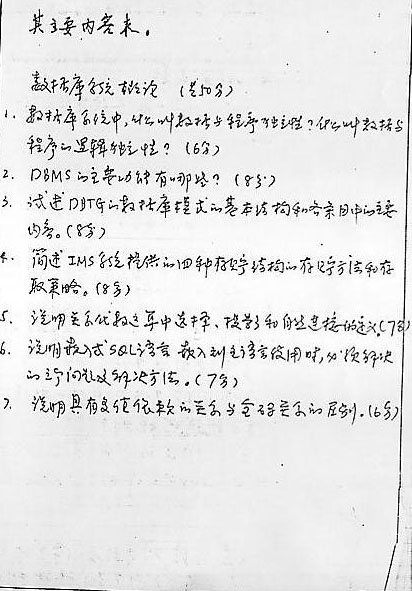 其主要内容来。
数据库系统概论 (共50分)
1. 数据库系统中,什么叫数据与程序独立性?什么叫数据与
程序的逻辑独立性? (6分)
2. DBMS的主要功能有哪些? (8分)
3. 试述DBTG的数据库模式的基本结构和各条目中的主要
内容。(8分)
4. 简述IMS系统提供的四种存贮结构的存贮方法和存
取策略。(8分)
5. 说明关系代数运算中选择、投影和自然连接的定义。(7分)
6. 说明嵌入式SQL语言嵌入到主语言使用时,必须解决
的三个问题及解决方法。(7分)
7. 说明具有多值依赖的关系与全码关系的区别。(6分)